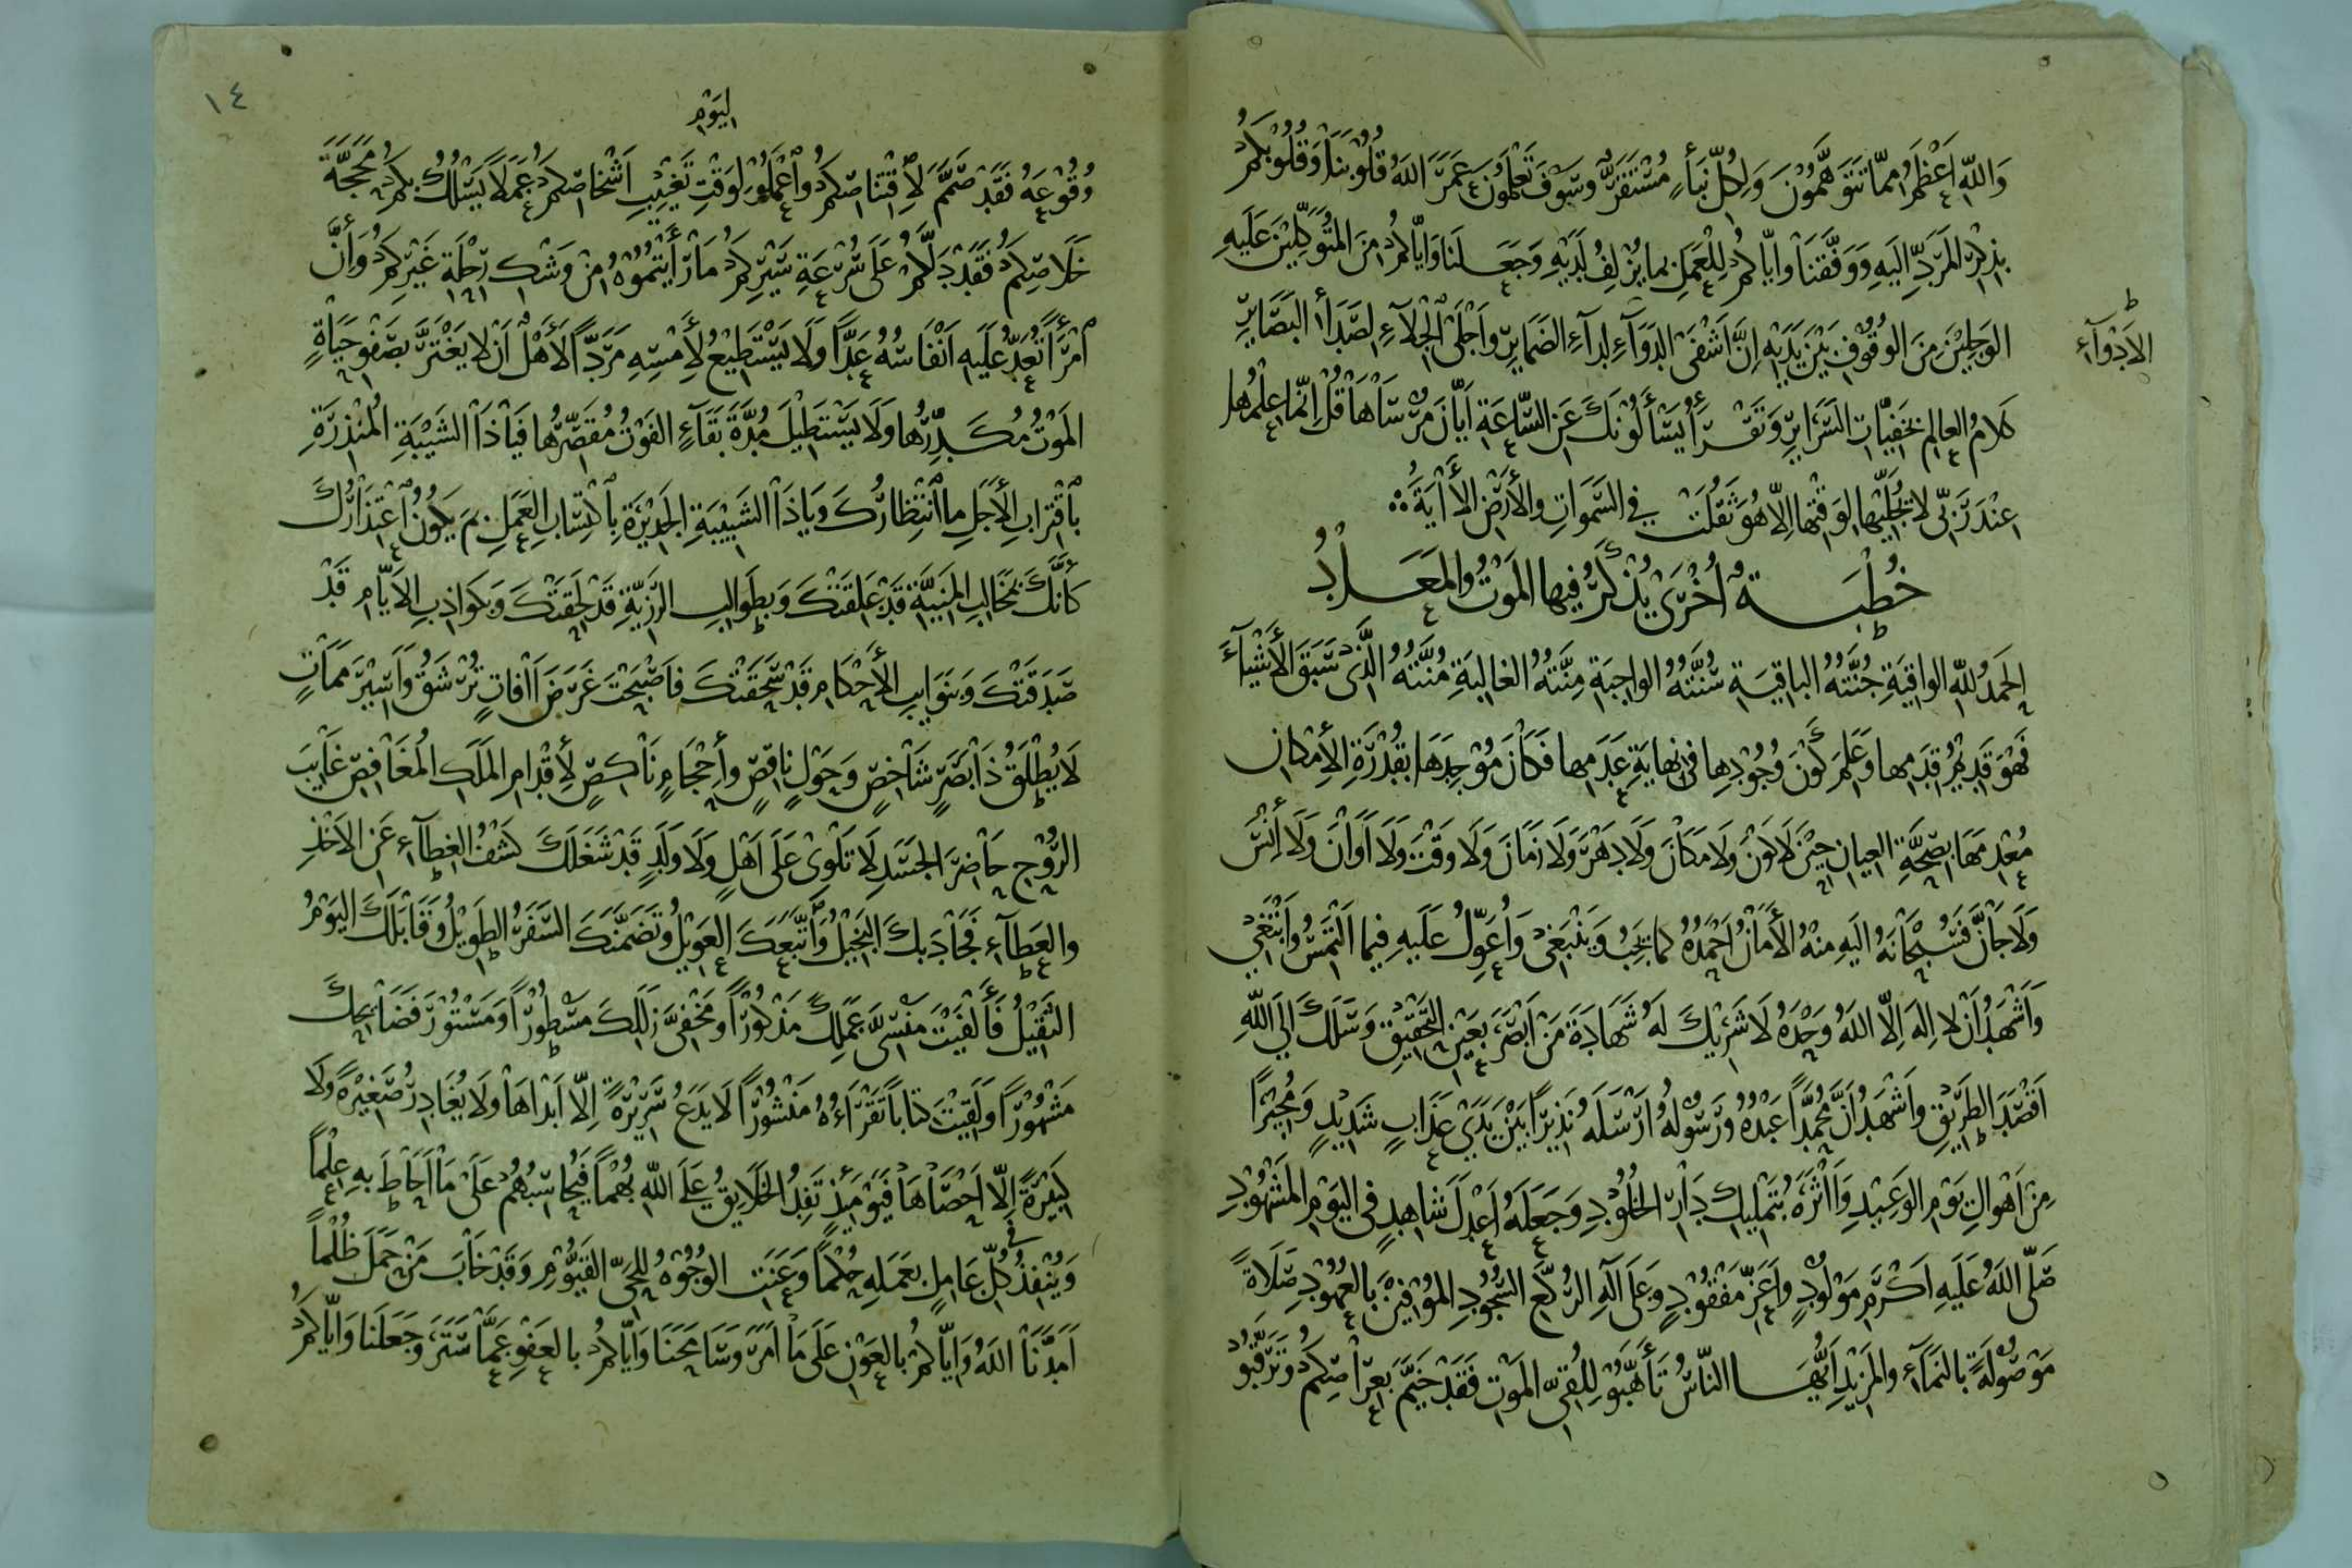 وَاللّٰهِ اَعْظَمُ مِمَّا تَتَوَهَّمُوْنَ وَلِكُلِّ نَبَأٍ مُسْتَقَرٌّ وَسَوْفَ تَعْلَمُونَ عَمَّرَ اللّٰهُ قُلُوْبَنَا وَقُلُوْبَكُمْ
بِذِكْرِ الْمَرَدِّ اِلَيْهِ وَوَفَّقَنَا وَاِيَّاكُمْ لِلْعَمَلِ بِمَا يُزْلِفُ لَدَيْهِ وَجَعَلَنَا وَاِيَّاكُمْ مِنَ الْمُتَوَكِّلِيْنَ عَلَيْهِ
الْوَجِلِيْنَ مِنَ الْوُقُوْفِ بَيْنَ يَدَيْهِ اِنَّ اَشْفَى الدَّوَآءِ لِدَآءِ الضَّمَايِرِ وَاَجْلَى الْجِلَآءِ لِصَدَأ الْبَصَايِرِ
الاَدْوَآءِ
كَلَامُ الْعَالِمِ بِخَفِيَّاتِ السَّرَايِرِ وَتَقْرَأُ يَسْأَلُوْنَكَ عَنِ السَّاعَةِ اَيَّانَ مُرْسَاهَا قُلْ اِنَّمَا عِلْمُهَا
عِنْدَ رَبِّى لَا يُجَلِّيْهَا لِوَقْتِهَا اِلَّا هُوَ ثَقُلَتْ فِي السَّمَوَاتِ وَالْأَرْضِ الْأَيَةَ
خُطْبَةٌ اُخْرَى يُذْكَرُ فِيهَا الْمَوْتُ وَالْمَعَادُ
اَلْحَمْدُ لِلّٰهِ الْوَاقِيَةِ جُنَّتُهُ الْبَاقِيَةِ سُنَّتُهُ الْوَاجِبَةِ مِنَّتُهُ الْغَالِبَةِ مُنَّتُهُ الَّذِى سَبَقَ الْأَشْيَآءَ
فَهُوَ قَدِيْمُ قِدَمِهَا وَعَلِمَ كَوْنَ وُجُوْدِهَا فِى نِهَايَةِ عَدَمِهَا فَكَانَ مُوْجِدَهَا بِقُدْرَةِ الْأِمْكَانِ
مُعْدِمَهَا بِصِحَّةِ الْعِيَانِ حِيْنَ لَا كَوْنَ وَلَا مَكَانَ وَلَا دَهْرَ وَلَا زَمَانَ وَلَا وَقْتَ وَلَا اَوَانَ وَلَا أِنْسَ
وَلَا جَانَّ فَسُبْحَانَهُ اِلَيْهِ مِنْهُ الْأَمَانُ اَحْمَدُهُ كَمَا يَجِبُ وَيَنْبَغِى وَأُعَوِّلُ عَلَيْهِ فِيمَا اَلْتَمِسُ وَاَبْتَغِى
وَاَشْهَدُ اَنْ لَا اِلٰهَ اِلَّا اللّٰهُ وَحْدَهُ لَا شَرِيْكَ لَهُ شَهَادَةَ مَنْ اَبْصَرَ بِعَيْنِ التَّحْقِيْقِ وَسَلَكَ اِلَى اللّٰهِ
اَقْصَدَ الطَّرِيْقِ وَاَشْهَدُ اَنَّ مُحَمَّداً عَبْدُهُ وَرَسُوْلُهُ اَرْسَلَهُ نَذِيْرًا بَيْنَ يَدَىْ عَذَابٍ شَدِيْدٍ وَمُجِيْرًا
مِنْ اَهْوَالِ يَوْمِ الْوَعِيْدِ وَاَاثَرَهُ بِتَمْلِيْكِ دَارِ الْخُلُوْدِ وَجَعَلَهُ اَعْدَلَ شَاهِدٍ فِى الْيَوْمِ الْمَشْهُوْدِ
صَلَّى اللّٰهُ عَلَيْهِ اَكْرَمِ مَوْلُوْدٍ وَاَعَزِّ مَفْقُوْدٍ وَعَلَى آلِهِ الرُّكَّعِ السُّجُوْدِ الْمُوْفِيْنَ بِالْعُهُوْدِ صَلَاةً
مَوْصُوْلَةً بِالنَّمَآءِ وَالْمَزِيْدِ اَيُّهَا النَّاسُ تَأَهَّبُوْا لِلُقِىِّ الْمَوْتِ فَقَدْ خَيَّمَ بِعِرَاصِكُمْ وَتَرَقَّبُوْا
١٤
لِيَوْمِ
وُقُوْعَهُ فَقَدْ صَمَّمَ لِاقْتِنَاصِكُمْ وَاعْمَلُوْا لِوَقْتِ تَغْيِيْبِ اَشْخَاصِكُمْ عَمَلًا يَسْلُكُ بِكُمْ مَحَجَّةَ
خَلَاصِكُمْ فَقَدْ دَلَّكُمْ عَلَى سُرْعَةِ سَيْرِكُمْ مَا رَأَيْتُمُوْهُ مِنْ وَشْكِ رِحْلَةِ غَيْرِكُمْ وَأَنَّ
امْرَأً تُعَدُّ عَلَيْهِ اَنْفَاسُهُ عَدًّا وَلَا يَسْتَطِيْعُ لِأَمْسِهِ مَرَدًّا لَأَهْلٌ اَنْ لَا يَغْتَرَّ بِصَفْوِ حَيَاةٍ
الْمَوْتُ مُكَدِّرُهَا وَلَا يَسْتَطِيْلَ مُدَّةَ بَقَآءٍ الْفَوْتُ مُقَصِّرُهَا فَيَا ذَا الشَّيْبَةِ الْمُنْذِرَةِ
بِاقْتِرَابِ الْأَجَلِ مَا انْتِظَارُكَ وَيَا ذَا الشَّبِيْبَةِ الْجَدِيْرَةِ بِاكْتِسَابِ الْعَمَلِ بِمَ يَكُوْنُ اعْتِذَارُكَ
كَأَنَّكَ بِمَخَالِبِ الْمَنِيَّةِ قَدْ عَلَقَتْكَ وَبِطَوَالِبِ الرَّزِيَّةِ قَدْ لَحِقَتْكَ وَبِكَوَاذِبِ الْأَيَّامِ قَدْ
صَدَقَتْكَ وَبِنَوَايِبِ الْأَحْكَامِ قَدْ سَحَقَتْكَ فَاَصْبَحْتَ غَرَضَ اَافَاتٍ تُرْشَقُ وَاَسِيْرَ مَمَاتٍ
لَا يُطْلَقُ ذَا بَصَرٍ شَاخِصٍ وَحَوْلٍ نَاقِصٍ وَأِحْجَامٍ نَاكِصٍ لِأِقْدَامِ الْمَلَكِ الْمُغَافِصِ غَايِبَ
الرُّوْحِ حَاضِرَ الْجَسَدِ لَا تَلْوِى عَلَى اَهْلٍ وَلَا وَلَدٍ قَدْ شَغَلَكَ كَشْفُ الْغِطَآءِ عَنِ الْاَخْذِ
وَالْعَطَآءِ فَجَادَ بِكَ الْبَخِيْلُ وَاتَّبَعَكَ الْعَوِيْلُ وَتَضَمَّنَكَ السَّفَرُ الطَّوِيْلُ وَقَابَلَكَ الْيَوْمُ
الثَّقِيْلُ فَأَلْفَيْتَ مَنْسِىَّ عَمَلِكَ مَذْكُوْرًا وَمَخْفِىَّ زَلَلِكَ مَسْطُوْرًا وَمَسْتُوْرَ فَضَايِحِكَ
مَشْهُوْرًا وَلَقِيْتَ كِتَابًا تَقْرَاءُهُ مَنْشُوْرًا لَا يَدَعُ سَرِيْرَةً اِلَّا اَبْدَاهَا وَلَا يُغَادِرُ صَغِيْرَةً وَلَا
كَبِيْرَةً اِلَّا اَحْصَاهَا فَيَوْمَئِذٍ تَفِدُ الْخَلَايِقُ عَلَى اللّٰهِ بُهْمًا فَيُحَاسِبُهُمْ عَلَى مَا اَحَاطَ بِهِ عِلْمًا
وَيُنْفِذُ فِى كُلِّ عَامِلٍ بِعَمَلِهِ حُكْمًا وَعَنَتِ الْوُجُوْهُ لِلْحَىِّ الْقَيُّوْمِ وَقَدْ خَابَ مَنْ حَمَلَ ظُلْمًا
اَمَدَّنَا اللّٰهُ وَاِيَّاكُمْ بِالْعَوْنِ عَلَى مَا اَمَرَ وَسَامَحَنَا وَاِيَّاكُمْ بِالْعَفْوِ عَمَّا سَتَرَ وَجَعَلَنَا وَاِيَّاكُمْ